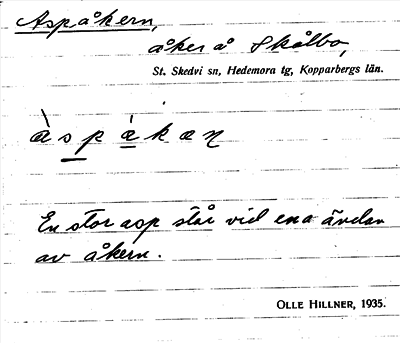 Aspåkern,
åker å Skålbo,
St. Skedvi sn, Hedemora tg, Kopparbergs län.
àspákan
En stor asp står vid ena ändan
av åkern.
OLLE HILLNER, 1935.